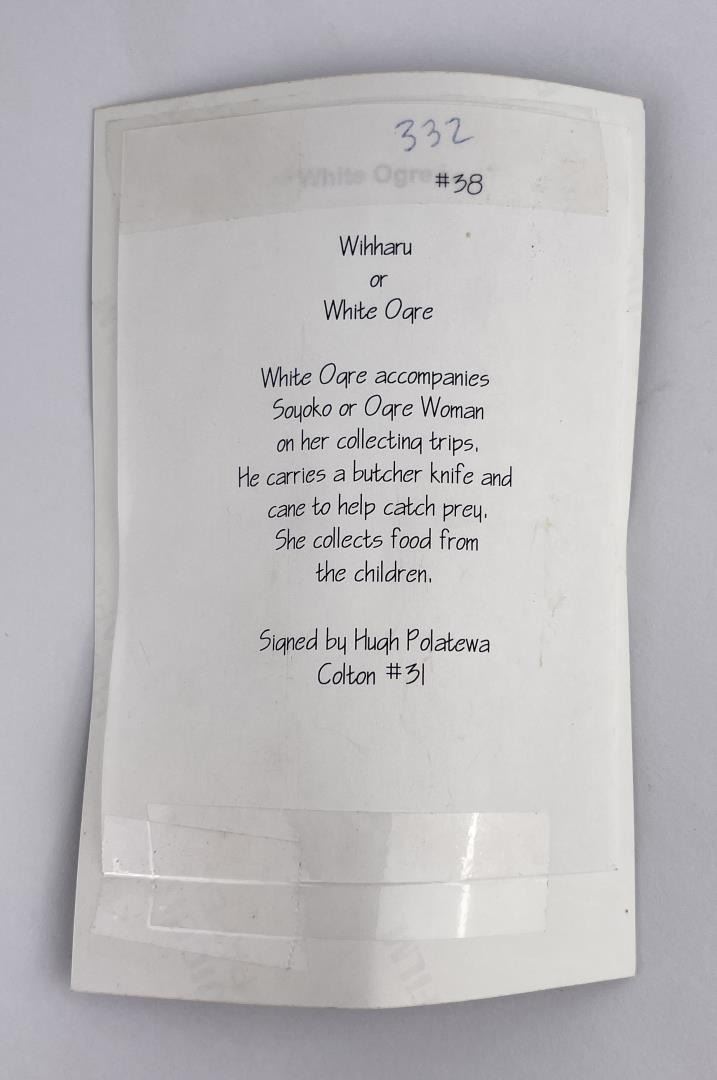 332
White Ogre
#38
Wihharu
or
White Ogre
White Ogre accompanies
Soyoko or Ogre Woman
on her collecting trips.
He carries a butcher knife and
cane to help catch prey.
She collects food from
the children.
Signed by Hugh Polatewa
Colton #31